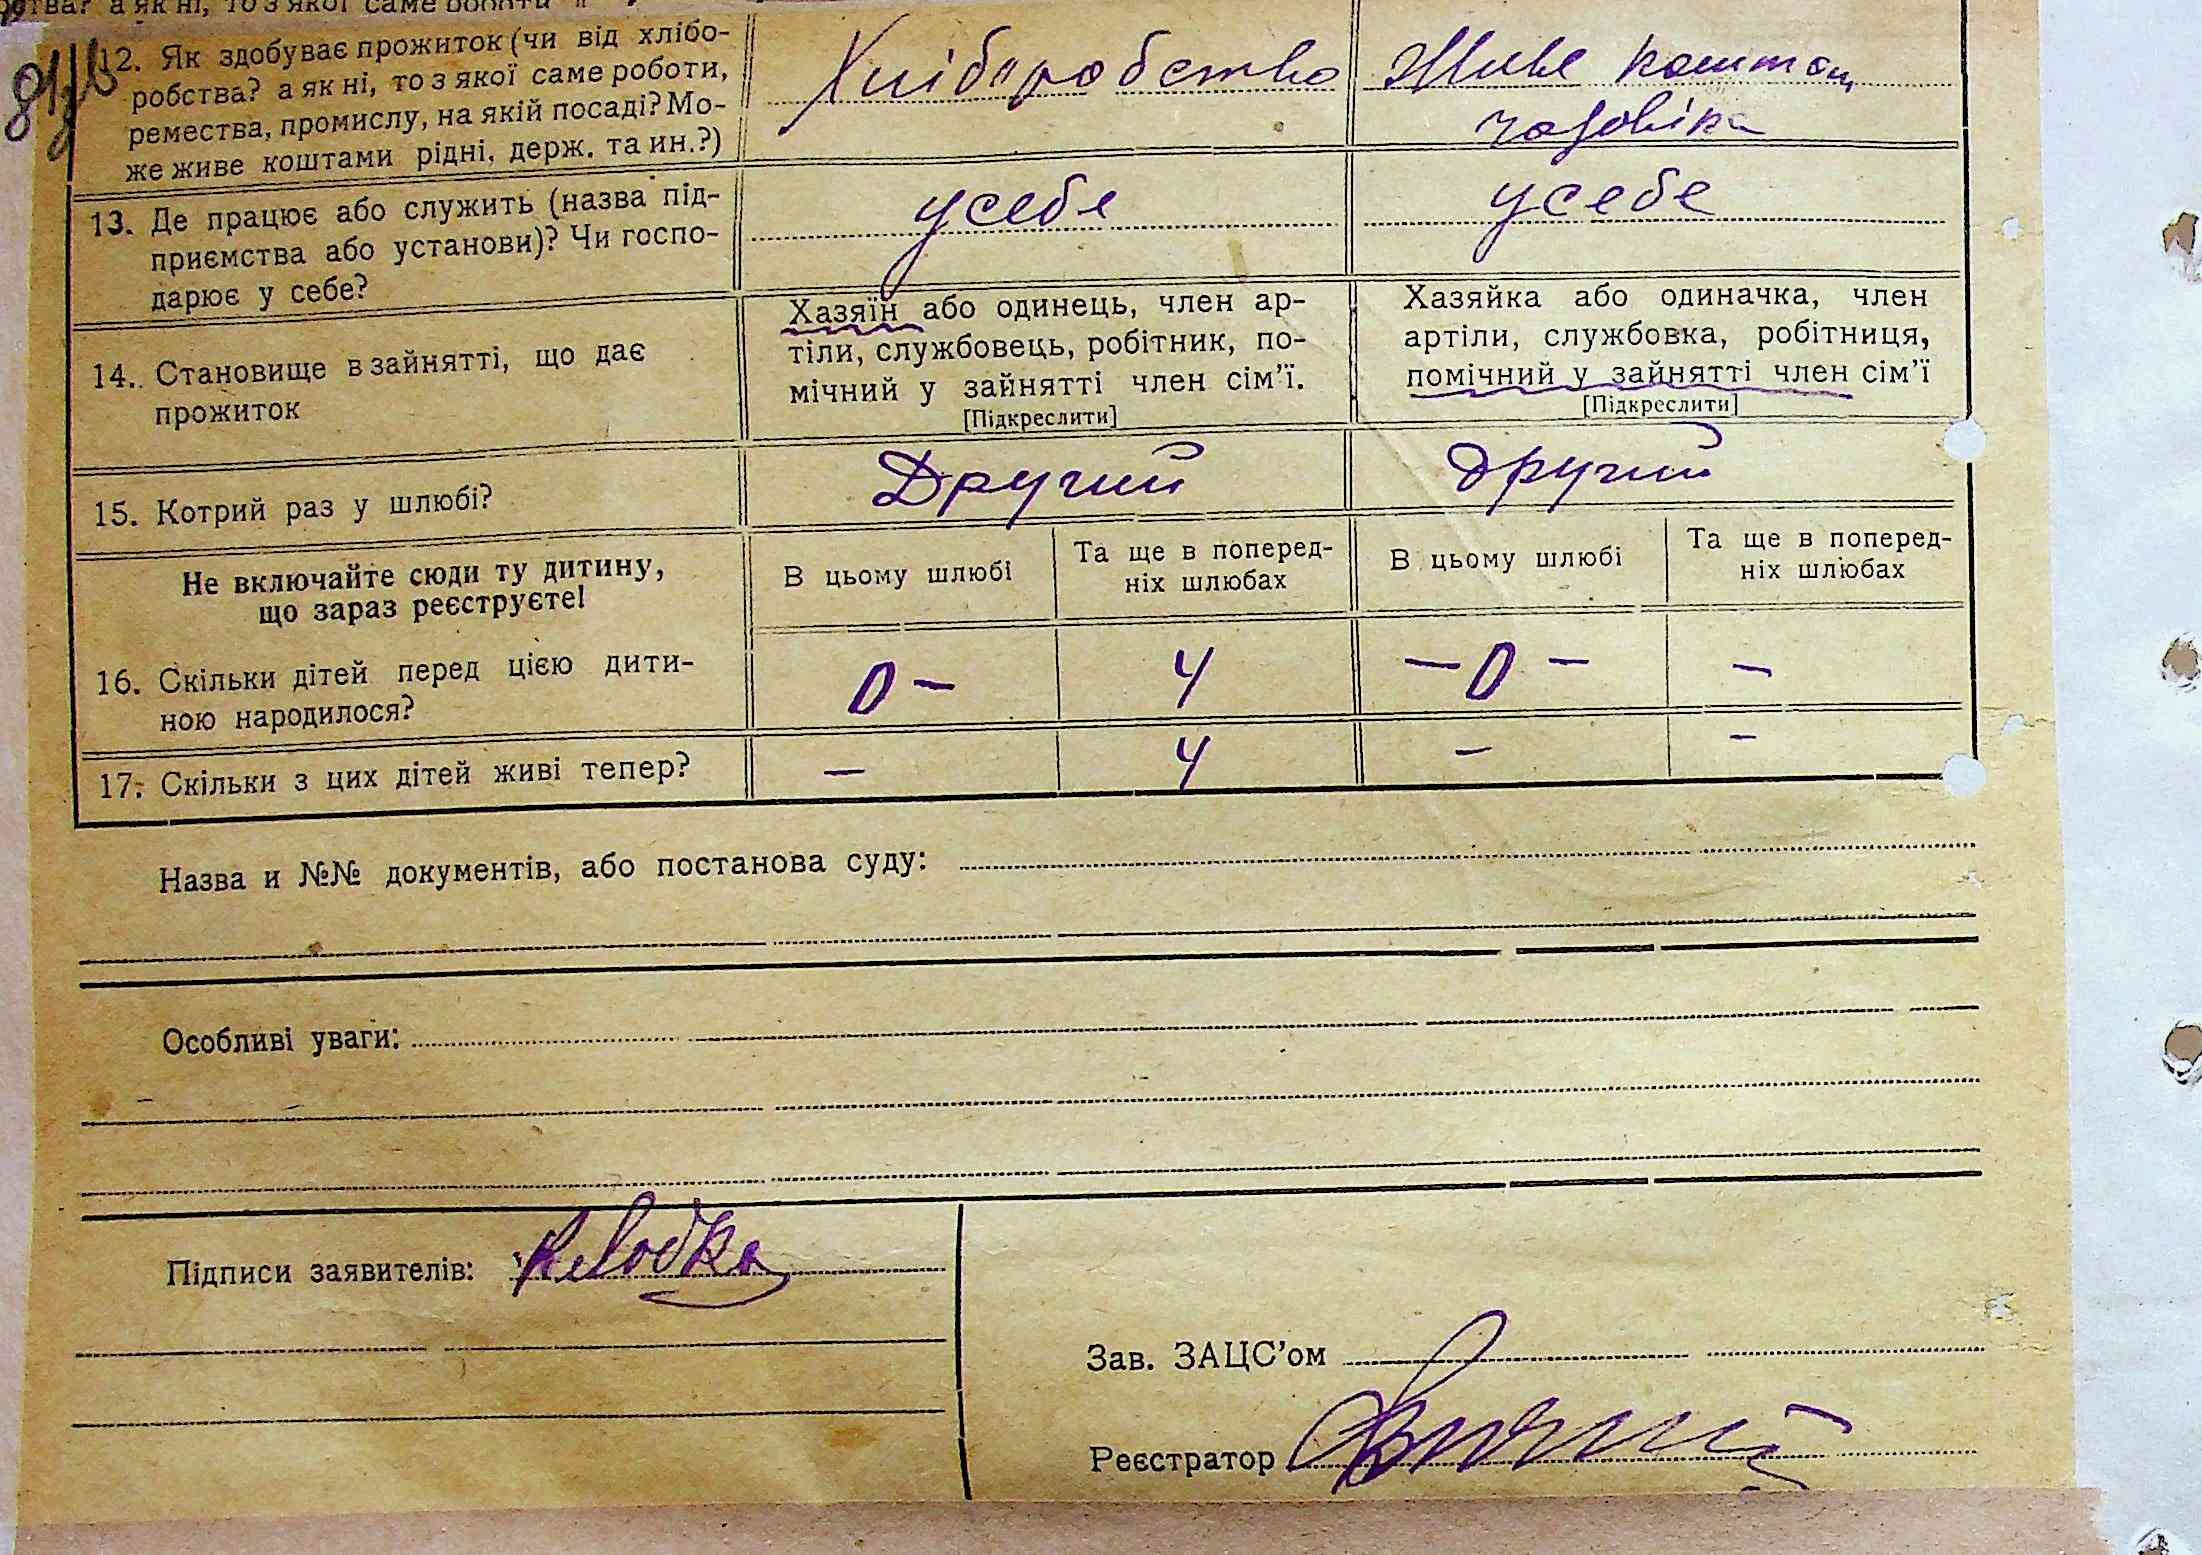 12. Як здобуває прожиток (чи від хлібо-
робства? а як ні, то з якої саме роботи,
ремества, промислу, на якій посаді? Мо-
же живе коштами рідні, держ. та ин.?)
Хліборобство
Живе коштом
чоловіка
13. Де працює або служить (назва під-
приємства або установи)? Чи госпо-
дарює у себе?
усебе
усебе
14. Становище в зайнятті, що дає
прожиток
Хазяїн або одинець, член ар-
тіли, службовець, робітник, по-
мічний у зайнятті член сім’ї.
[Підкреслити]
Хазяйка або одиначка, член
артіли, службовка, робітниця,
помічний у зайнятті член сім’ї
[Підкреслити]
15. Котрий раз у шлюбі?
Другий
другий
Не включайте сюди ту дитину,
що зараз реєструєте!
В цьому шлюбі
Та ще в поперед-
ніх шлюбах
В цьому шлюбі
Та ще в поперед-
ніх шлюбах
16. Скільки дітей перед цією дити-
ною народилося?
0 –
4
– 0 –
–
17. Скільки з цих дітей живі тепер?
–
4
–
–
Назва и №№ документів, або постанова суду:
Особливі уваги:
Підписи заявителів:
Зав. ЗАЦС’ом
Реєстратор